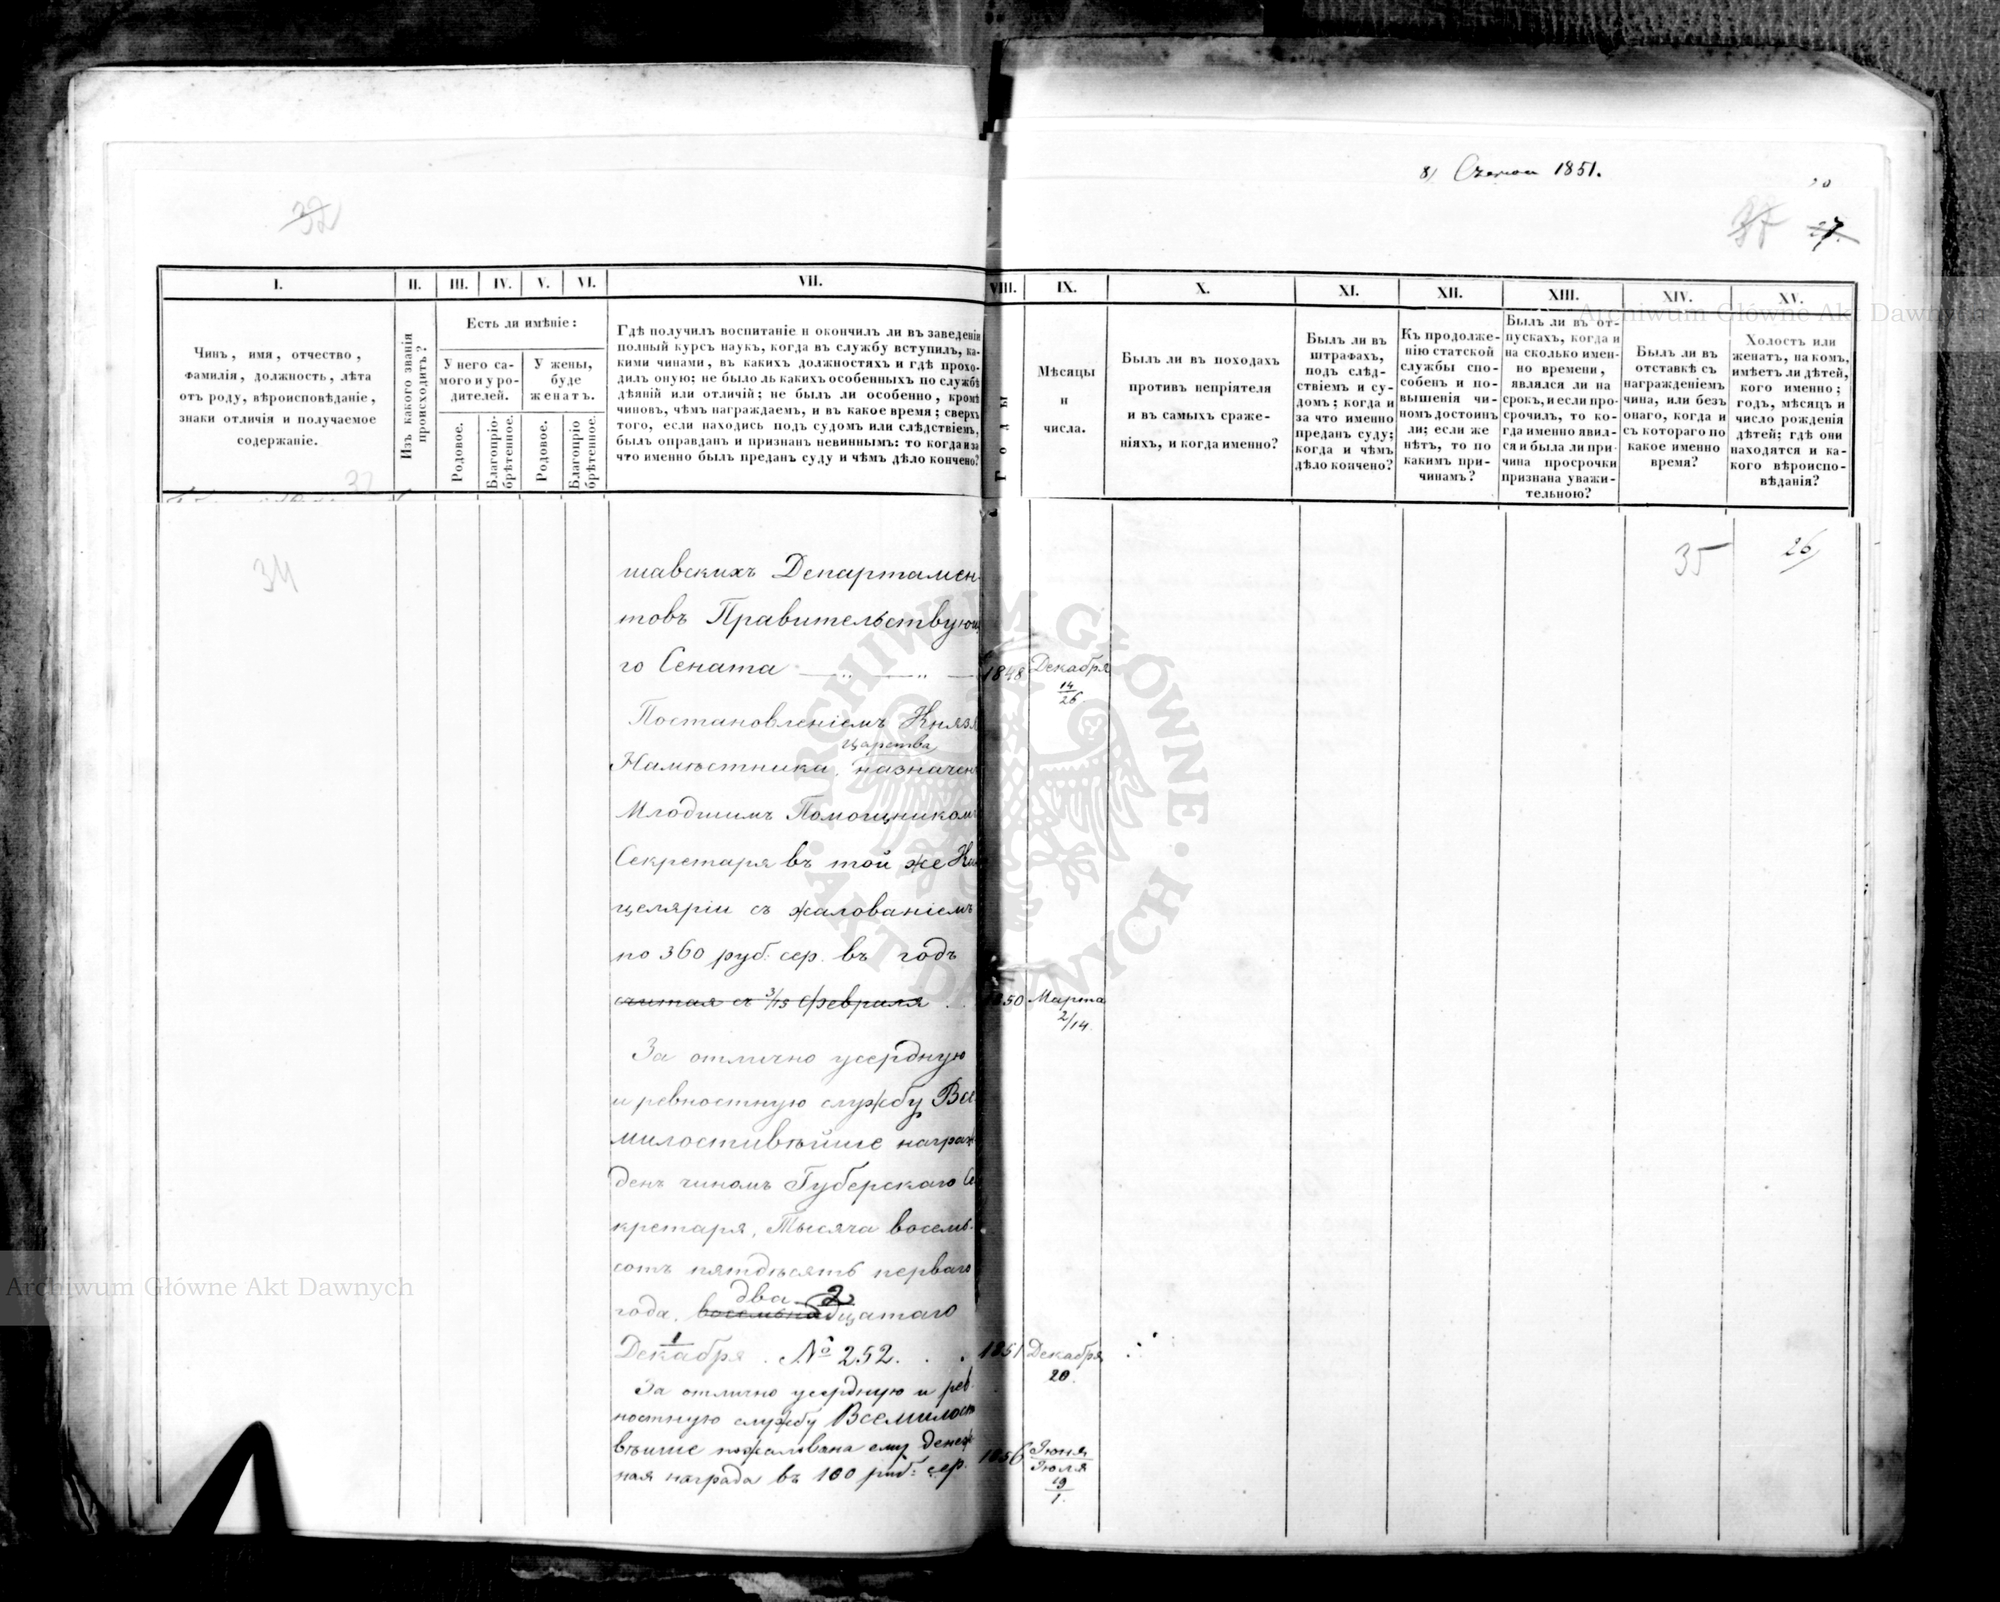 8) Czerwca 1851.
32
37 27.
I. II. III. IV. V. VI. VII. VIII. IX. X. XI. XII. XIII. XIV. XV.
Чинъ, имя, отчество,
фамилія, должность, лѣта
отъ роду, вѣроисповѣданіе,
знаки отличія и получаемое
содержаніе.
Изъ какого званія
происходитъ?
Есть ли имѣніе:
У него са-
мого и у ро-
дителей.
У жены,
буде
женатъ.
Родовое.
Благопріо-
брѣтенное.
Родовое.
Благопріо
брѣтенное.
Гдѣ получилъ воспитаніе и окончилъ ли въ заведеніи
полный курсъ наукъ, когда въ службу вступилъ, ка-
кими чинами, въ какихъ должностяхъ и гдѣ прохо-
дилъ оную; не было ль какихъ особенныхъ по службѣ
дѣяній или отличій; не былъ ли особенно, кромѣ
чиновъ, чѣмъ награждаемъ, и въ какое время; сверхъ
того, если находись подъ судомъ или слѣдствіемъ,
былъ оправданъ и признанъ невиннымъ: то когда и за
что именно былъ преданъ суду и чѣмъ дѣло кончено?
Годы
Мѣсяцы
и
числа.
Былъ ли въ походахъ
противъ непріятеля
и въ самыхъ сраже-
ніяхъ, и когда именно?
Былъ ли въ
штрафахъ,
подъ слѣд-
ствіемъ и су-
домъ; когда и
за что именно
преданъ суду;
когда и чѣмъ
дѣло кончено?
Къ продолже-
нію статской
службы спо-
собенъ и по-
вышенія чи-
номъ достоинъ
ли; если же
нѣтъ, то по
какимъ при-
чинамъ?
Былъ ли въ от-
пускахъ, когда и
на сколько имен-
но времени,
являлся ли на
срокъ, и если про-
срочилъ, то ко-
гда именно явил-
ся и была ли при-
чина просрочки
признана уважи-
тельною?
Былъ ли въ
отставкѣ съ
награжденіемъ
чина, или безъ
онаго, когда и
съ котораго по
какое именно
время?
Холостъ или
женатъ, на комъ,
имѣетъ ли дѣтей,
кого именно;
годъ, мѣсяцъ и
число рожденія
дѣтей; гдѣ они
находятся и ка-
кого вѣроиспо-
вѣданія?
32
34
35
26
шавскихъ Департамен-
товъ Правительствующ
го Сената 1848 Декабря
14
26
Постановленіемъ Князя
Царства
Намѣстника, назначенъ
Младшимъ Помощникомъ
Секретаря въ той же Кан
целяріи съ жалованіемъ
по 360 руб: сер. въ годъ
считая съ 3/15 Февраля . . 1850 Марта
2/14.
За отлично усердную
и ревностную службу Все-
милостивѣйше награж
денъ чиномъ Губерскаго Се
кретаря, Тысяча восемь-
сотъ пятдѣсятъ перваго
два 2
года, восемьнадцатаго
1
Декабря . № 252. . . 1851 Декабря
20.
За отлично усердную и рев-
ностную службу Всемилости
вѣйше пожалована ему денеж
ная награда въ 100 руб: сер. 1856 Іюня
Іюля
19
1.
Archiwum Główne Akt Dawnych
Archiwum Główne Akt Dawnych
ARCHIWUM GŁÓWNE · AKT DAWNYCH ·